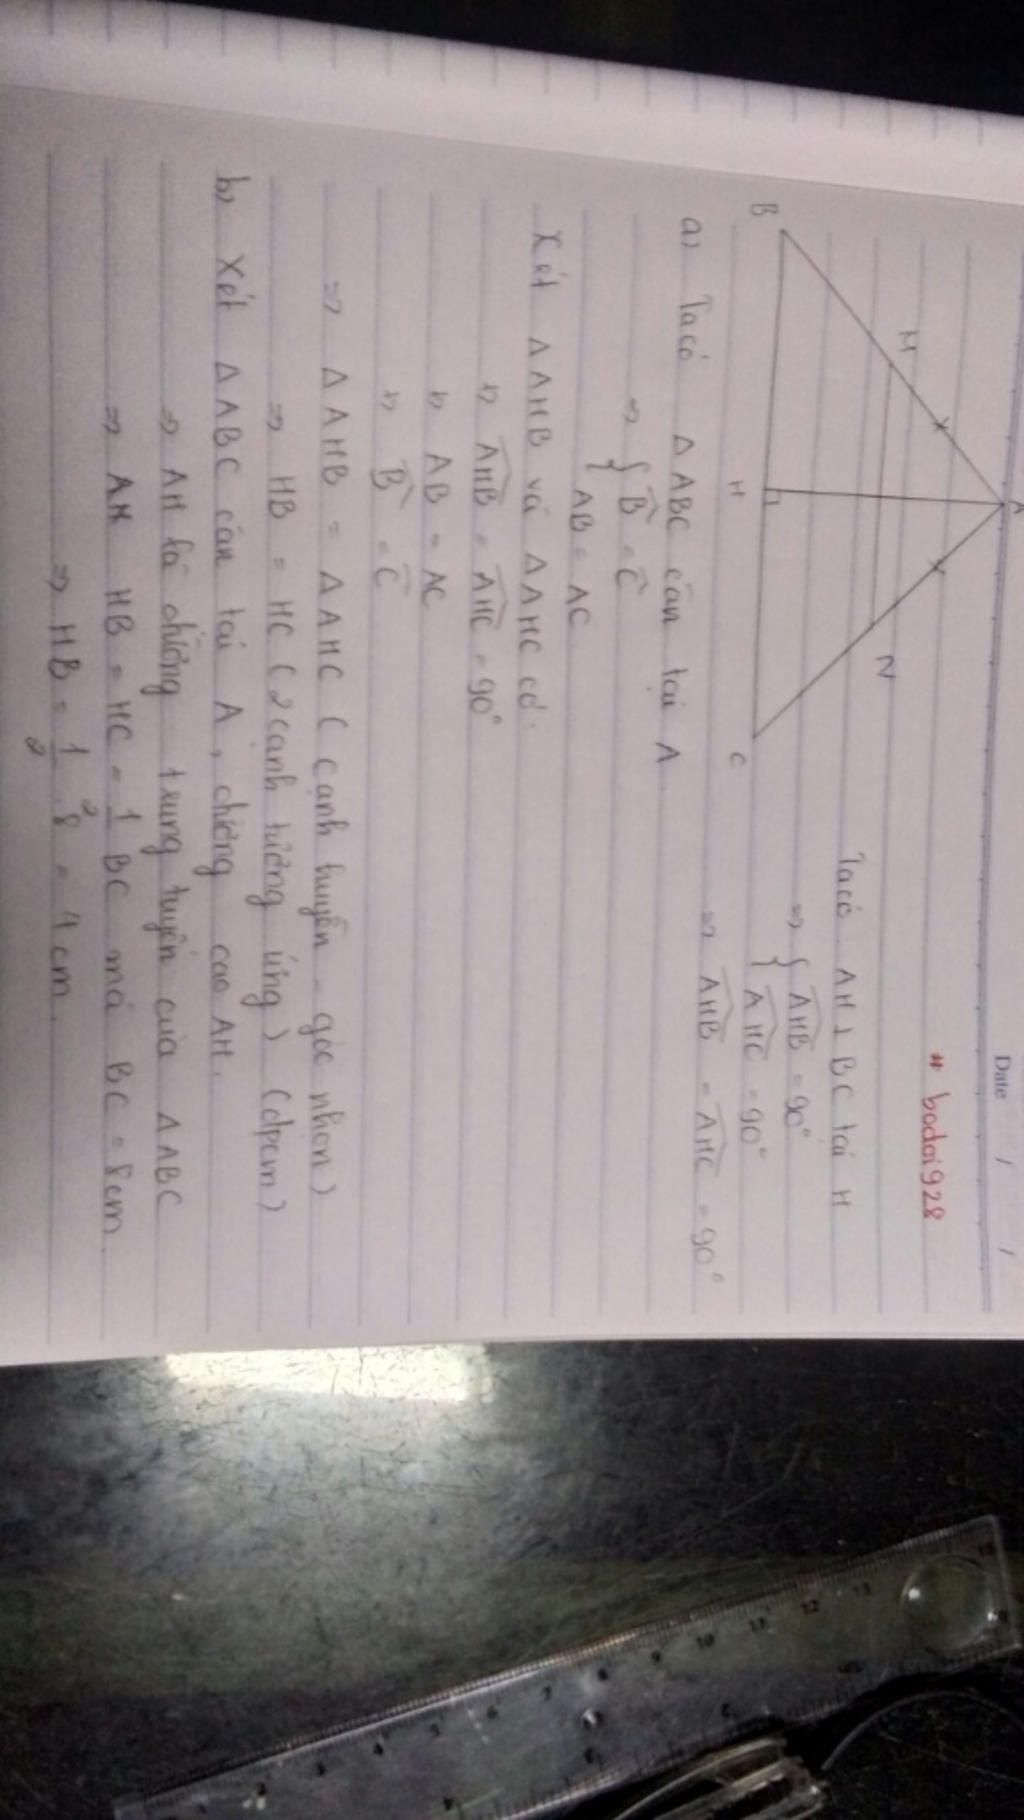 Date / /
# bodoi928
A
M
N
B
H
C
Ta có AH ⊥ BC tại H
=> { AHB = 90°
AHC = 90°
=> AHB = AHC = 90°
a) Ta có Δ ABC cân tại A
=> { B = C
AB = AC
Xét Δ AHB và Δ AHC có:
AHB = AHC = 90°
AB = AC
B = C
=> Δ AHB = Δ AHC ( cạnh huyền - góc nhọn )
=> HB = HC ( 2 cạnh tương ứng ) (đpcm)
b) Xét Δ ABC cân tại A, đường cao AH.
=> AH là đường trung tuyến của Δ ABC
=> AH HB = HC = 1/2 BC mà BC = 8cm
=> HB = 1/2 . 8 = 4 cm.